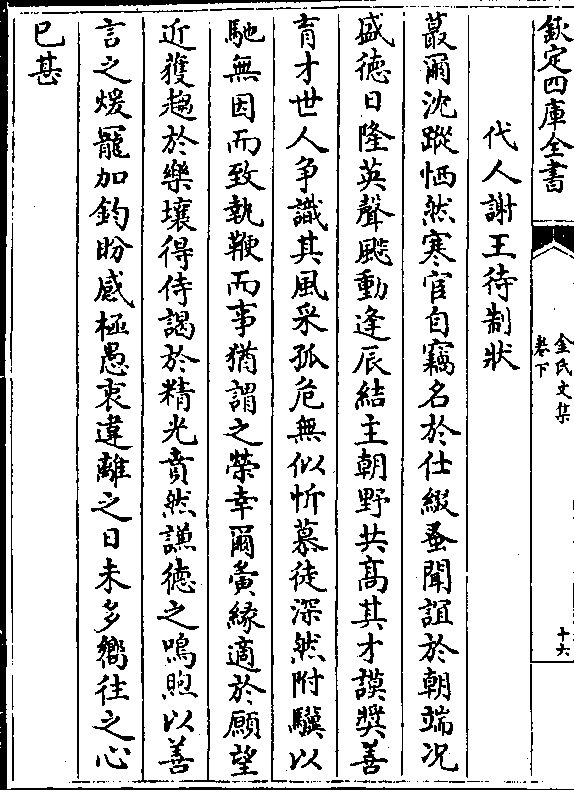 欽定四庫全書
金氏文集
卷下
十六
代人謝王待制狀
蕞爾沈蹤恓然寒官自竊名於仕綴蚤聞誼於朝端况
盛徳日隆英聲颷動逢辰結主朝野共髙其才謨奬善
育才世人争識其風采孤危無似忻慕徒深然附驥以
馳無因而致執鞭而事猶謂之榮幸爾夤縁適於願望
近獲趨於樂壤得侍謁於精光賁然謙徳之嗚煦以善
言之煖寵加鈞盼感極愚衷違離之日未多嚮往之心
已甚